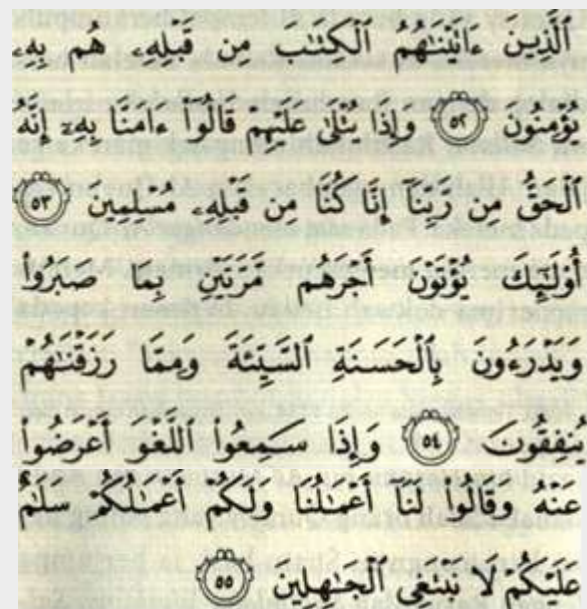 ٱلَّذِينَ ءَاتَيْنَٰهُمُ ٱلْكِتَٰبَ مِن قَبْلِهِۦ هُم بِهِۦ
يُؤْمِنُونَ ٥٢ وَإِذَا يُتْلَىٰ عَلَيْهِمْ قَالُوٓا۟ ءَامَنَّا بِهِۦٓ إِنَّهُ
ٱلْحَقُّ مِن رَّبِّنَآ إِنَّا كُنَّا مِن قَبْلِهِۦ مُسْلِمِينَ ٥٣
أُو۟لَٰٓئِكَ يُؤْتَوْنَ أَجْرَهُم مَّرَّتَيْنِ بِمَا صَبَرُوا۟
وَيَدْرَءُونَ بِٱلْحَسَنَةِ ٱلسَّيِّئَةَ وَمِمَّا رَزَقْنَٰهُمْ
يُنفِقُونَ ٥٤ وَإِذَا سَمِعُوا۟ ٱللَّغْوَ أَعْرَضُوا۟
عَنْهُ وَقَالُوا۟ لَنَآ أَعْمَٰلُنَا وَلَكُمْ أَعْمَٰلُكُمْ سَلَٰمٌ
عَلَيْكُمْ لَا نَبْتَغِى ٱلْجَٰهِلِينَ ٥٥